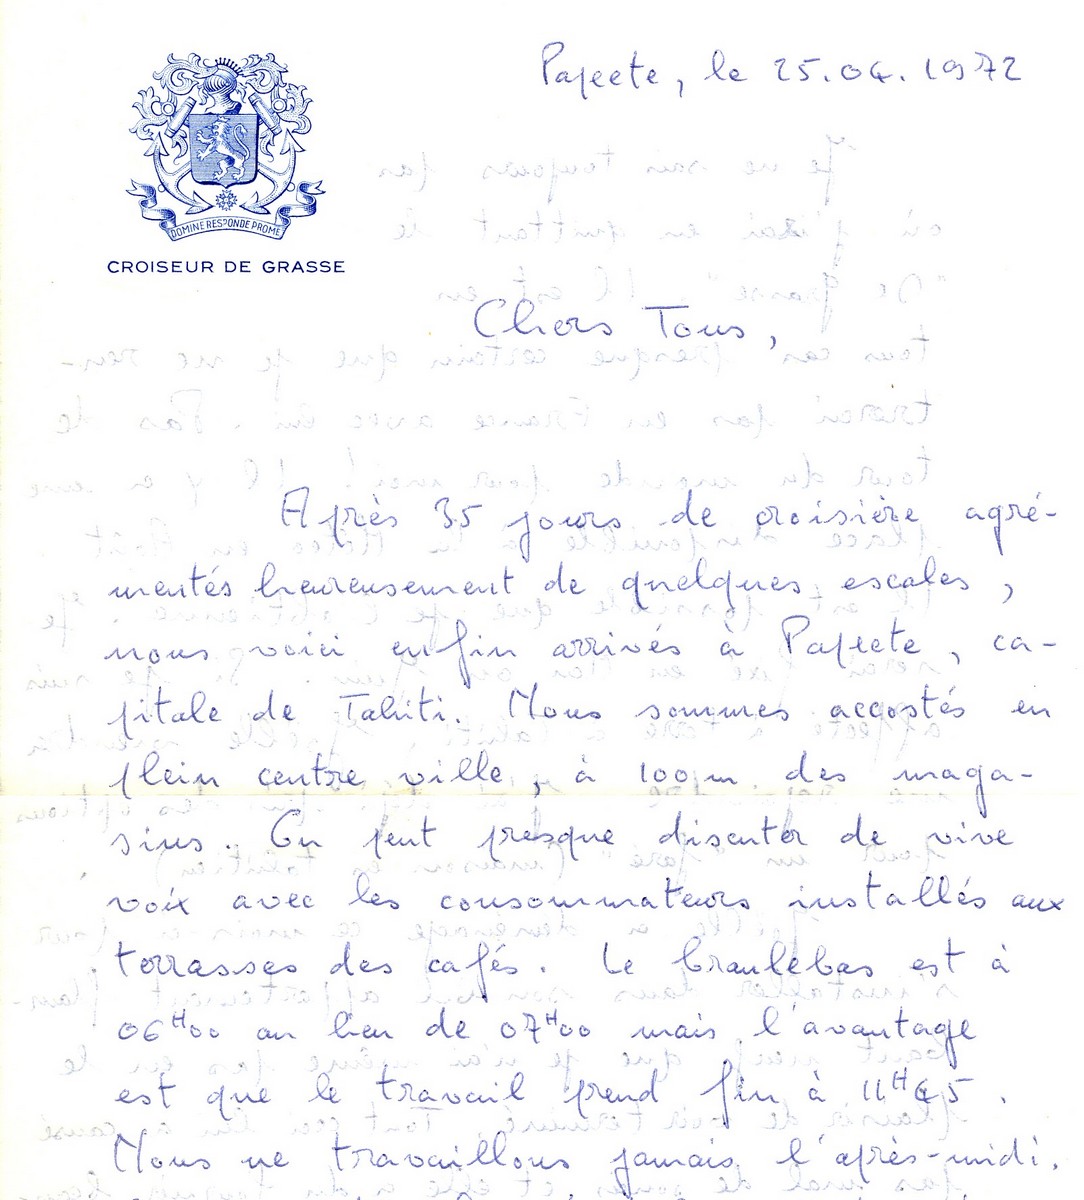 Papeete, le 25.04.1972
DOMINE RESPONDE PRO ME
CROISEUR DE GRASSE
Chers Tous,
Après 35 jours de croisière agré-
mentés heureusement de quelques escales,
nous voici enfin arrivés à Papeete, ca-
pitale de Tahiti. Nous sommes accostés en
plein centre ville, à 100m des maga-
sins. On peut presque discuter de vive
voix avec les consommateurs installés aux
terrasses des cafés. Le branlebas est à
06H00 au lieu de 07H00 mais l'avantage
est que le travail prend fin à 11H45.
Nous ne travaillons jamais l'après-midi.